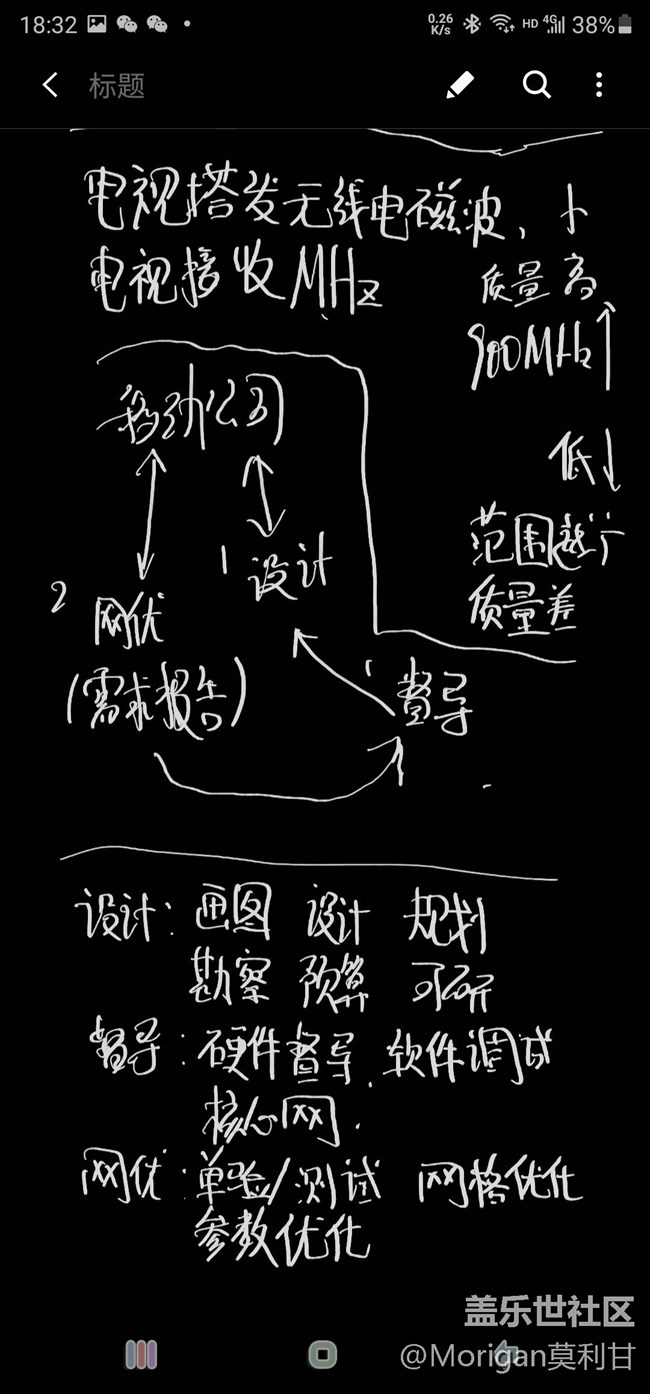 18:32
0.26 K/s HD 4G 38%
标题
电视搭发无线电磁波,卜
电视接收MHz
质量高
900MHz↑
移动公司
低↓
范围越广
质量差
1 设计
2 网优
(需求报告)
1 督导
设计:画图 设计 规划
勘察 预算 可研
督导:硬件督导.软件调试
核心网.
网优:单验/测试 网格优化
参数优化
盖乐世社区
@Morigan莫利甘